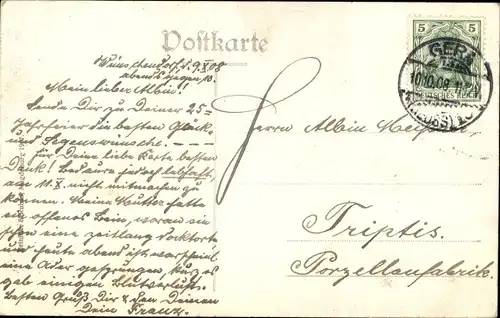 Postkarte
Wünschendorf, d. 9.X.08
abends gegen 10.
Mein lieber Albin!
Sende Dir zu Deiner 25-
Jahrfeier die besten Glück-
und Segenswünsche. ——
Für Deine liebe Karte besten
Dank! Bedaure jedoch lebhaft,
am 11.X. nicht mitmachen zu
können. Meine Mutter hatte
ein offenes Bein, woran sie
schon eine zeitlang dockterte
und heute abend ist wahrscheinl.
eine Ader gesprungen, kurz es
gab einigen Blutverlust.
Besten Gruß Dir & den Deinen
Dein Franz.
5
GERA
10.10.08
DEUTSCHES REICH
(REUSS)
Herrn Albin
Triptis.
Porzellanfabrik.